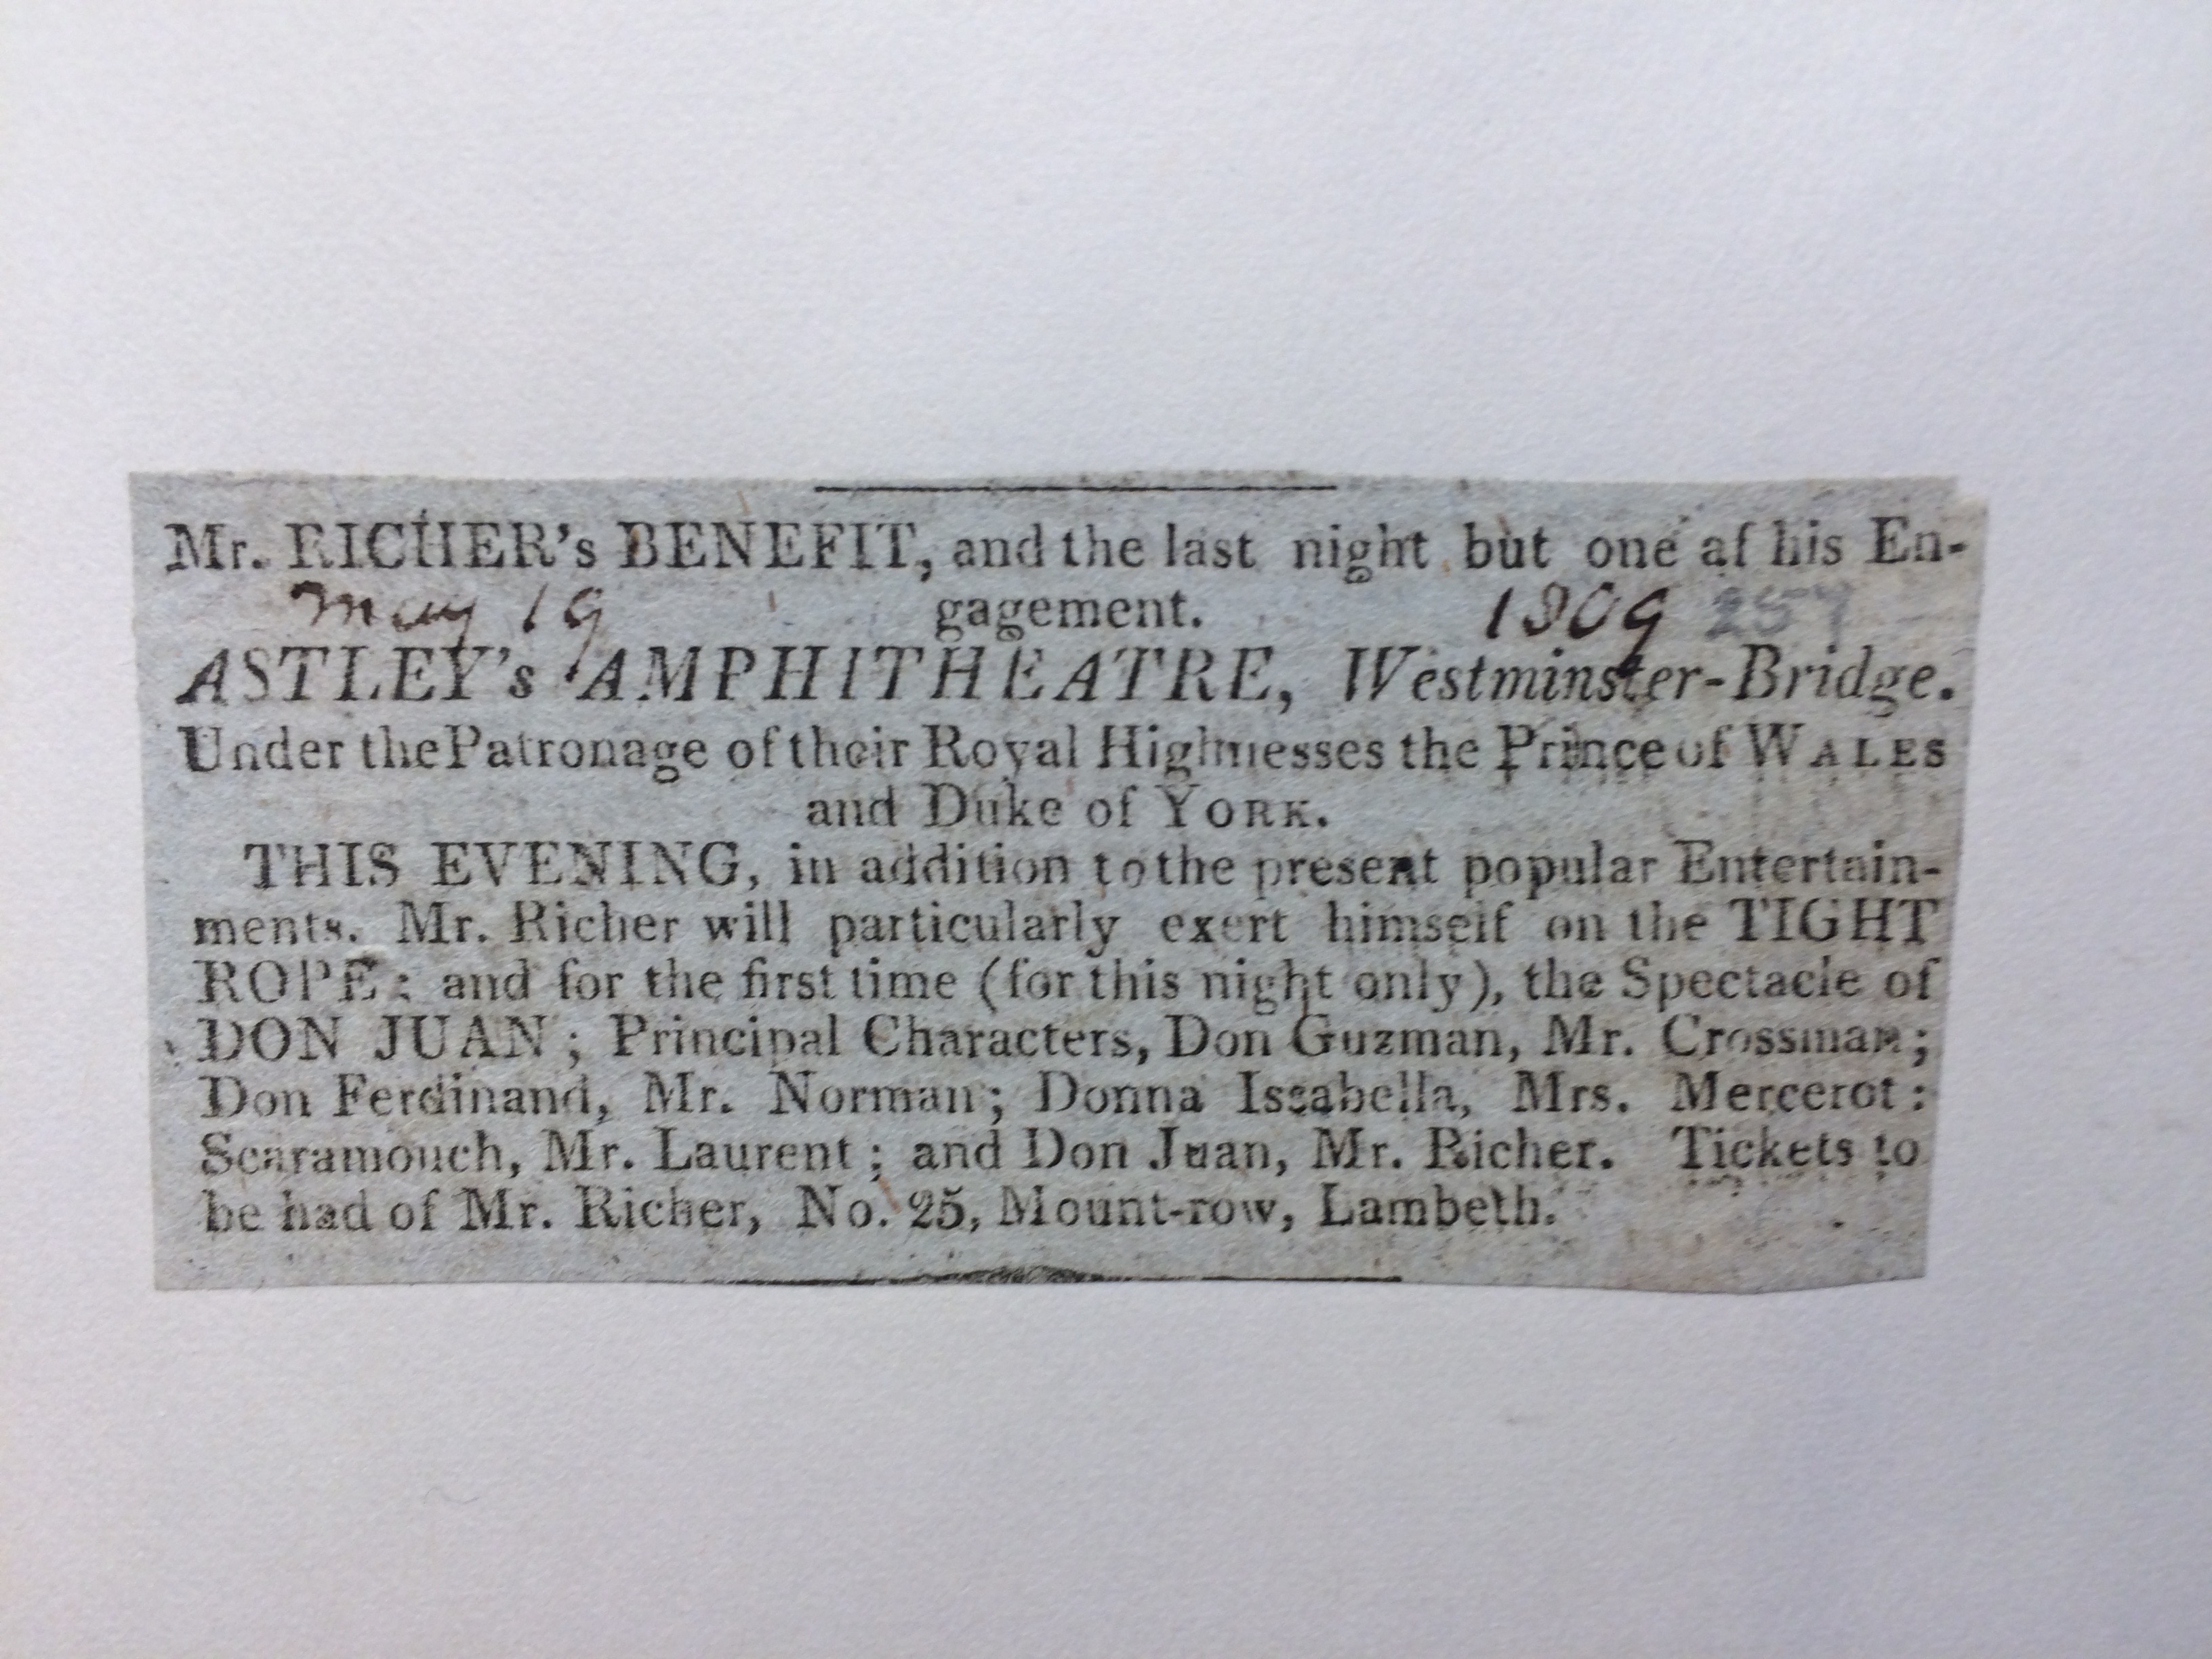 Mr. RICHER's BENEFIT, and the last night but one af his En-
gagement.
May 19 1809 257
ASTLEY's AMPHITHEATRE, Westminster-Bridge.
Under the Patronage of their Royal Highnesses the Prince of WALES
and Duke of YORK.
THIS EVENING, in addition to the present popular Entertain-
ments. Mr. Richer will particularly exert himself on the TIGHT
ROPE; and for the first time (for this night only), the Spectacle of
DON JUAN; Principal Characters, Don Guzman, Mr. Crossman;
Don Ferdinand, Mr. Norman; Donna Issabella, Mrs. Mercerot:
Scaramouch, Mr. Laurent; and Don Juan, Mr. Richer. Tickets to
be had of Mr. Richer, No. 25, Mount-row, Lambeth.